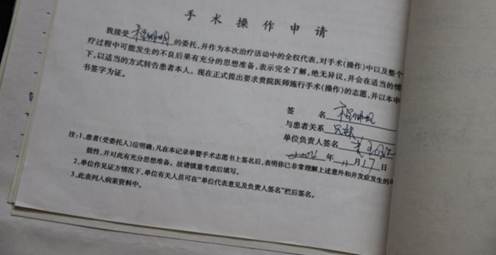 手术操作申请
我接受 的委托，并作为本次治疗活动中的全权代表，对手术(操作)中以及整个
疗过程中可能发生的不良后果有充分的思想准备，表示完全了解，他无异议，并会在适当的情
下，以适当的方式转告患者本人。现在正式提出要求贵院医师施行手术(操作)的志愿，并以本申
书签字为证。
签 名
与患者关系
单位负责人签名
年 11月17日
注：1.患者(受委托人)应明确：凡在本记录单暨手术志愿书上签名后，表明你已非常理解上述意外和并发症发生的
能性，并对此有充分思想准备。故请慎重考虑后填写。
2.单位作见证方情况下，单位有关人员可在“单位代表意见及负责人签名”栏后签名。
3.此表列入病案资料中。